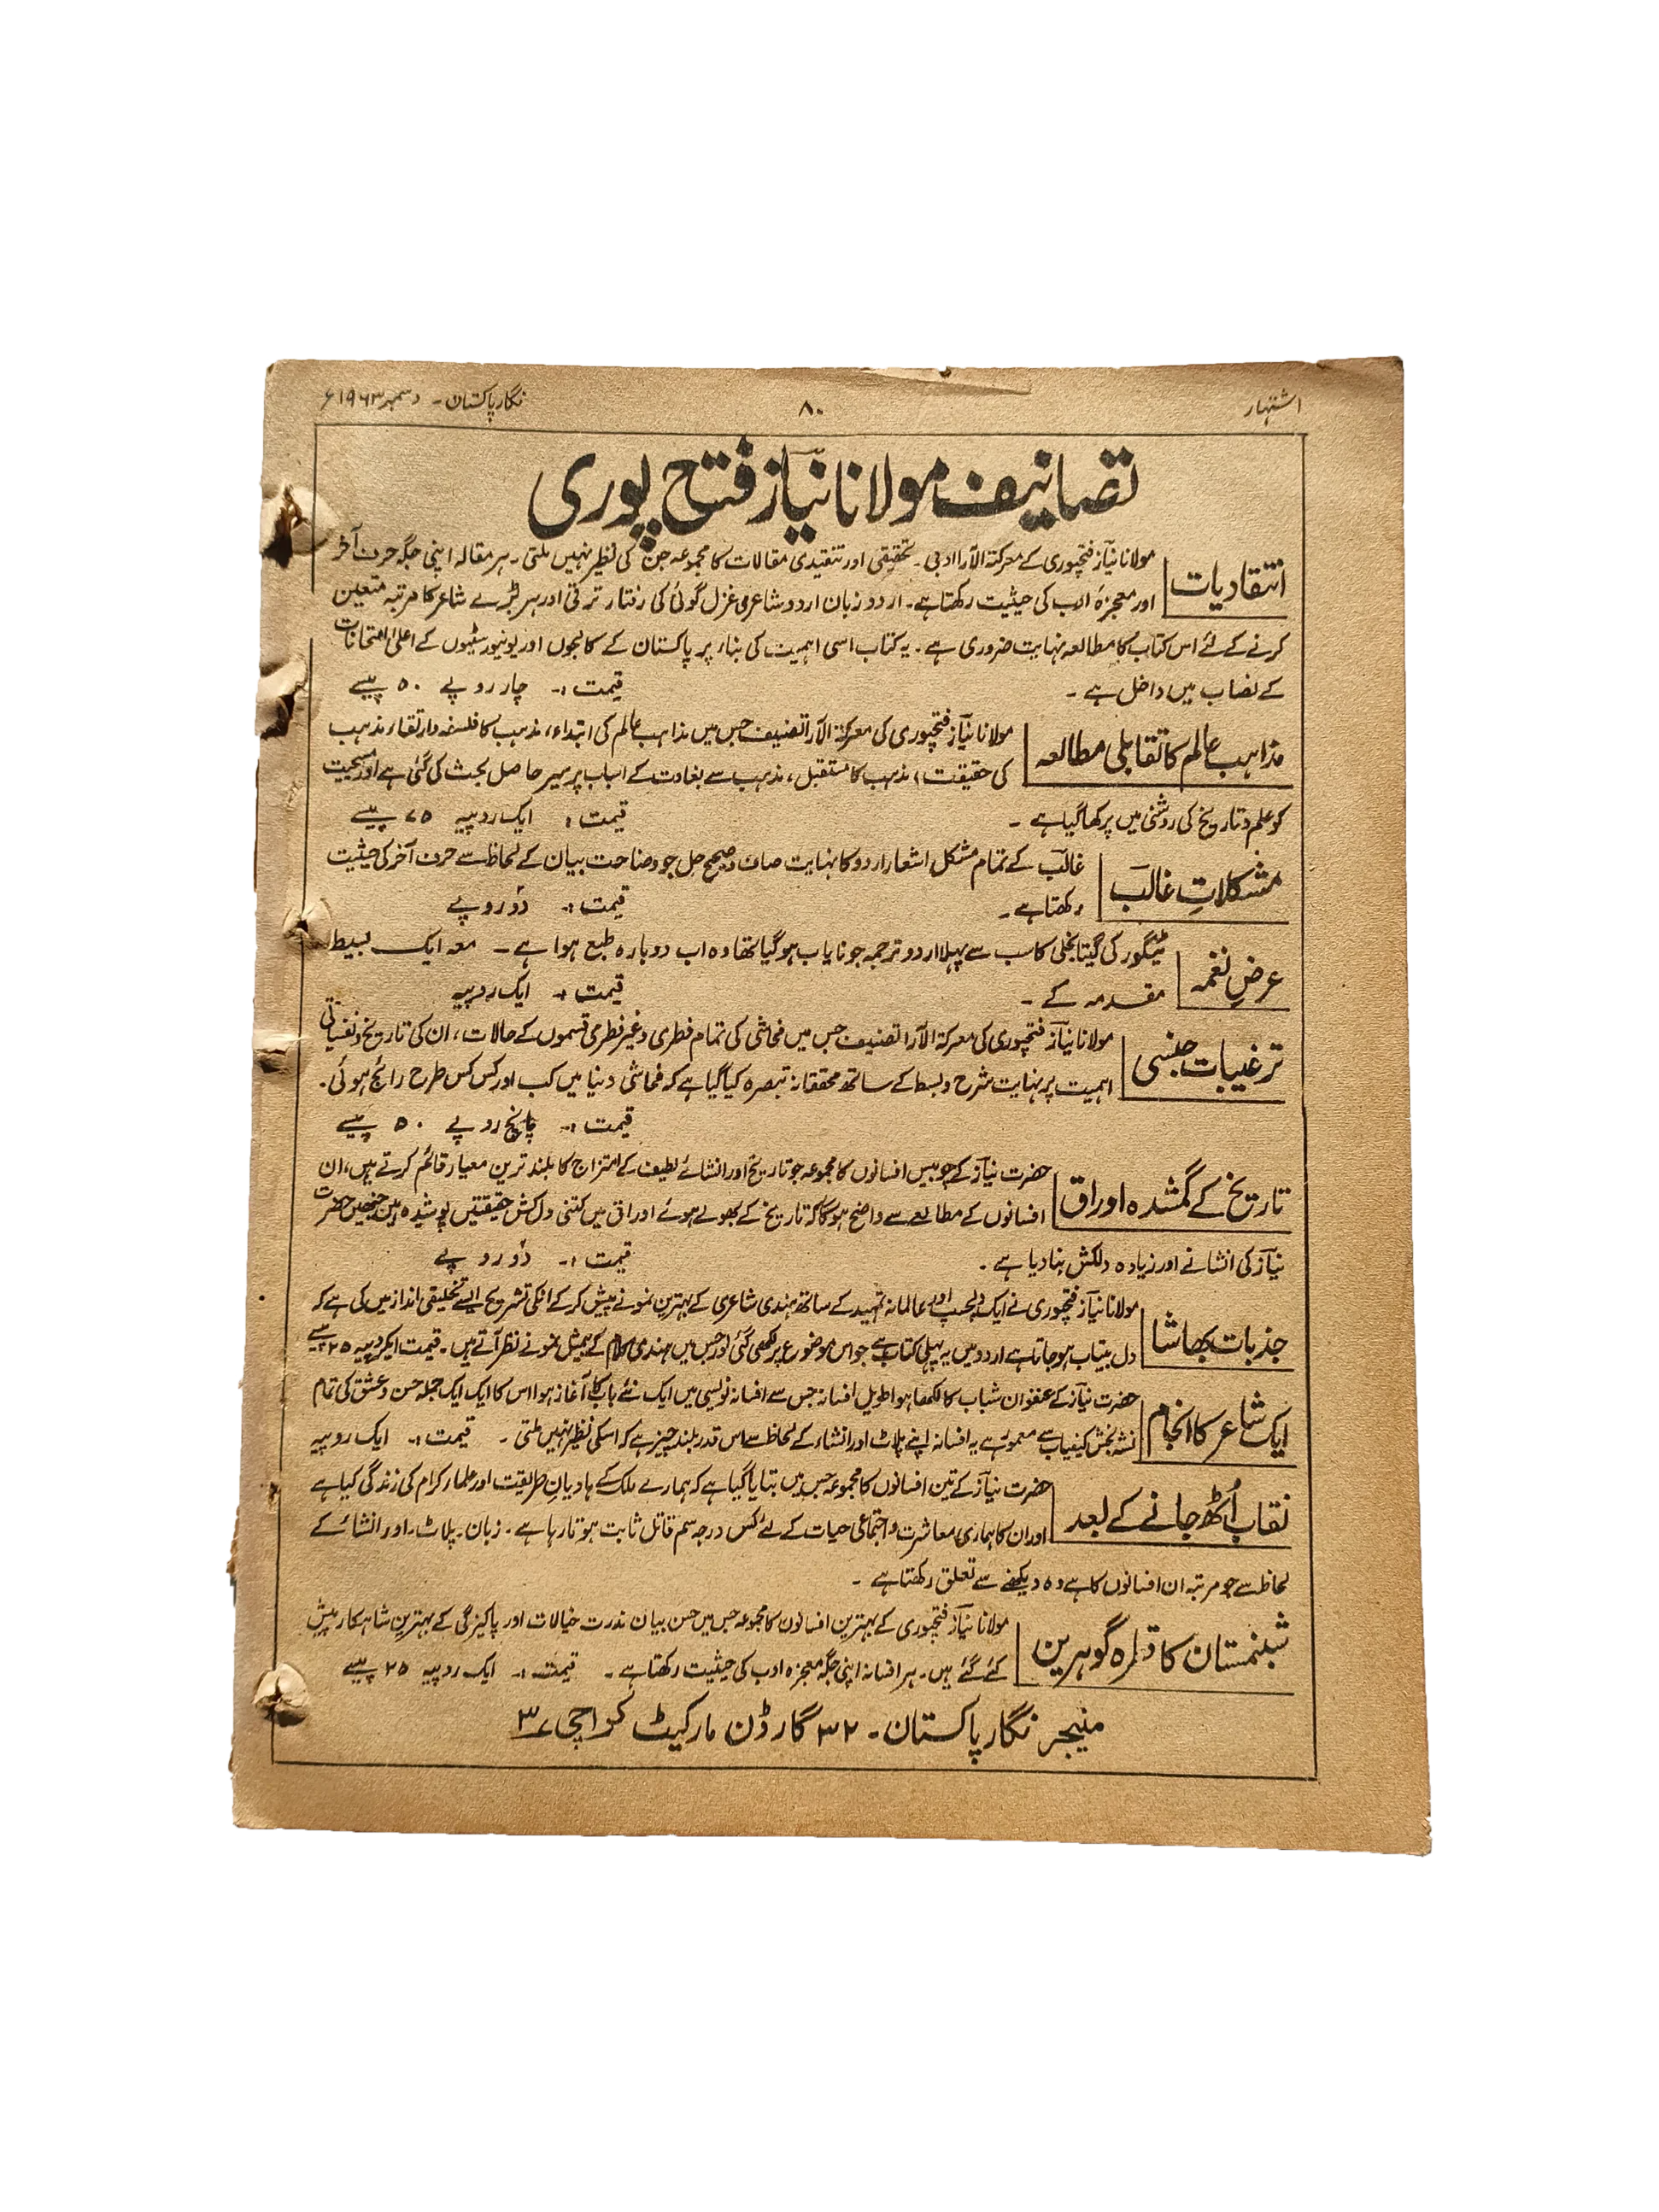 اشتہار
۸۰
نگار پاکستان ۔ دسمبر ۱۹۶۳ء
تصانیف مولانا نیاز فتح پوری
انتقادیات
مولانا نیاز فتحپوری کے معرکۃ الآرا ادبی ۔ تحقیقی اور تنقیدی مقالات کا مجموعہ جن کی نظیر نہیں ملتی ۔ ہر مقالہ اپنی جگہ حرف آخر
اور معجزۂ ادب کی حیثیت رکھتا ہے ۔ اردو زبان اردو شاعری غزل گوئی کی رفتار ترقی اور ہر بڑے شاعر کا مرتبہ متعین
کرنے کے لئے اس کتاب کا مطالعہ نہایت ضروری ہے ۔ یہ کتاب اسی اہمیت کی بناء پر پاکستان کے کالجوں اور یونیورسٹیوں کے اعلیٰ امتحانات
کے نصاب میں داخل ہے ۔ قیمت :۔ چار روپے ۵۰ پیسے
مذاہب عالم کا تقابلی مطالعہ
مولانا نیاز فتحپوری کی معرکۃ الآرا تصنیف جس میں مذاہب عالم کی ابتداء، مذہب کا فلسفہ و ارتقاء، مذہب
کی حقیقت، مذہب کا مستقبل، مذہب سے بغاوت کے اسباب پر سیر حاصل بحث کی گئی ہے اور مسیحیت
کو علم و تاریخ کی روشنی میں پرکھا گیا ہے ۔ قیمت : ایک روپیہ ۷۵ پیسے
مشکلاتِ غالب
غالب کے تمام مشکل اشعار اردو کا نہایت صاف و صحیح حل جو وضاحت بیان کے لحاظ سے حرف آخر کی حیثیت
رکھتا ہے ۔ قیمت :۔ دو روپے
عرضِ نغمہ
ٹیگور کی گیتانجلی کا سب سے پہلا اردو ترجمہ جو نایاب ہو گیا تھا وہ اب دوبارہ طبع ہوا ہے ۔ معہ ایک بسیط
مقدمہ کے ۔ قیمت :۔ ایک روپیہ
ترغیبات جنسی
مولانا نیاز فتحپوری کی معرکۃ الآرا تصنیف جس میں فحاشی کی تمام فطری و غیر فطری قسموں کے حالات، ان کی تاریخ و نفسیاتی
اہمیت پر نہایت شرح و بسط کے ساتھ محققانہ تبصرہ کیا گیا ہے کہ فحاشی دنیا میں کب اور کس کس طرح رائج ہوئی ۔
قیمت :۔ پانچ روپے ۵۰ پیسے
تاریخ کے گمشدہ اوراق
حضرت نیاز کے چوبیس افسانوں کا مجموعہ جو تاریخ اور انشائے لطیف کے امتزاج کا بلند ترین معیار قائم کرتے ہیں، ان
افسانوں کے مطالعے سے واضح ہوگا کہ تاریخ کے بھولے ہوئے اوراق میں کتنی دل کش حقیقتیں پوشیدہ ہیں جنہیں حضرت
نیاز کی انشا نے اور زیادہ دلکش بنا دیا ہے ۔ قیمت :۔ دو روپے
جذبات بھاشا
مولانا نیاز فتحپوری نے ایک دلچسپ اور عالمانہ تمہید کے ساتھ ہندی شاعری کے بہترین نمونے پیش کر کے انکی تشریح ایسے تخلیقی انداز میں کی ہے کہ
دل بیتاب ہو جاتا ہے اردو میں یہ پہلی کتاب ہے جو اس موضوع پر لکھی گئی اور جس میں ہندی کلام کے بےمثل نمونے نظر آتے ہیں ۔ قیمت ایک روپیہ ۲۵ پیسے
ایک شاعر کا انجام
حضرت نیاز کے عنفوان شباب کا لکھا ہوا طویل افسانہ جس سے افسانہ نویسی میں ایک نئے باب کا آغاز ہوا اس کا ایک ایک جملہ حسن و عشق کی تمام
نشہ بخش کیفیات سے معمور ہے یہ افسانہ اپنے پلاٹ اور انشاء کے لحاظ سے اس قدر بلند چیز ہے کہ اسکی نظیر نہیں ملتی ۔ قیمت :۔ ایک روپیہ
نقاب اُٹھ جانے کے بعد
حضرت نیاز کے تین افسانوں کا مجموعہ جس میں بتایا گیا ہے کہ ہمارے ملک کے ہادیانِ طریقت اور علماء کرام کی زندگی کیا ہے
اور ان کا ہماری معاشرت و اجتماعی حیات کے لئے کس درجہ سم قاتل ثابت ہوتا رہا ہے ۔ زبان ۔ پلاٹ ۔ اور انشائے کے
لحاظ سے جو مرتبہ ان افسانوں کا ہے وہ دیکھنے سے تعلق رکھتا ہے ۔
شبنمستان کا قطرہ گوہریں
مولانا نیاز فتحپوری کے بہترین افسانوں کا مجموعہ جس میں حسن بیان ندرت خیالات اور پاکیزگی کے بہترین شاہکار پیش
کئے گئے ہیں ۔ ہر افسانہ اپنی جگہ معجزہ ادب کی حیثیت رکھتا ہے ۔ قیمت :۔ ایک روپیہ ۲۵ پیسے
منیجر نگار پاکستان ۔ ۳۲ گارڈن مارکیٹ کراچی ۳